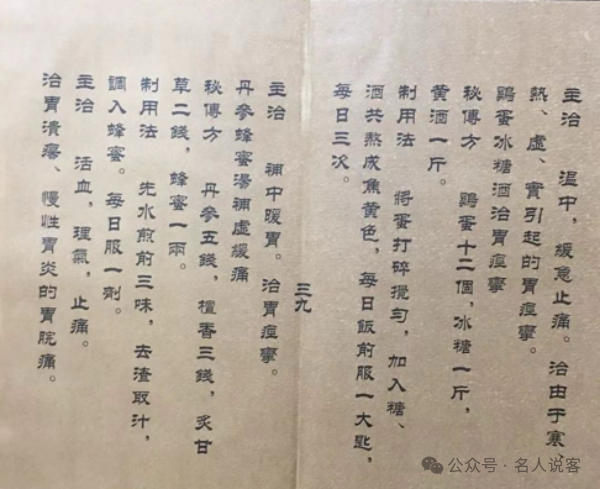 主治　溫中，緩急止痛。治由于寒、
熱、虛、實引起的胃痙攣。
鷄蛋冰糖酒治胃痙攣
秘傳方　鷄蛋十二個，冰糖一斤，
黃酒一斤。
制用法　將蛋打碎攪勻，加入糖、
酒共熬成焦黃色，每日飯前服一大匙，
每日三次。
三九
主治　補中暖胃。治胃痙攣。
丹參蜂蜜湯補虛緩痛
秘傳方　丹參五錢，檀香三錢，炙甘
草二錢，蜂蜜一兩。
制用法　先水煎前三味，去渣取汁，
調入蜂蜜。每日服一劑。
主治　活血，理氣，止痛。
治胃潰瘍、慢性胃炎的胃脘痛。
公众号·名人说客